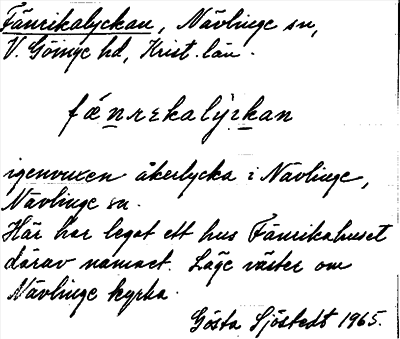 Fänrikalyckan, Nävlinge sn,
V. Göinge hd, Krist. län.
fǽnrɛkalỳckan
igenvuxen åkerlycka i Nävlinge,
Nävlinge sn.
Här har legat ett hus Fänrikahuset
därav namnet. Läge väster om
Nävlinge kyrka.
Gösta Sjöstedt 1965.